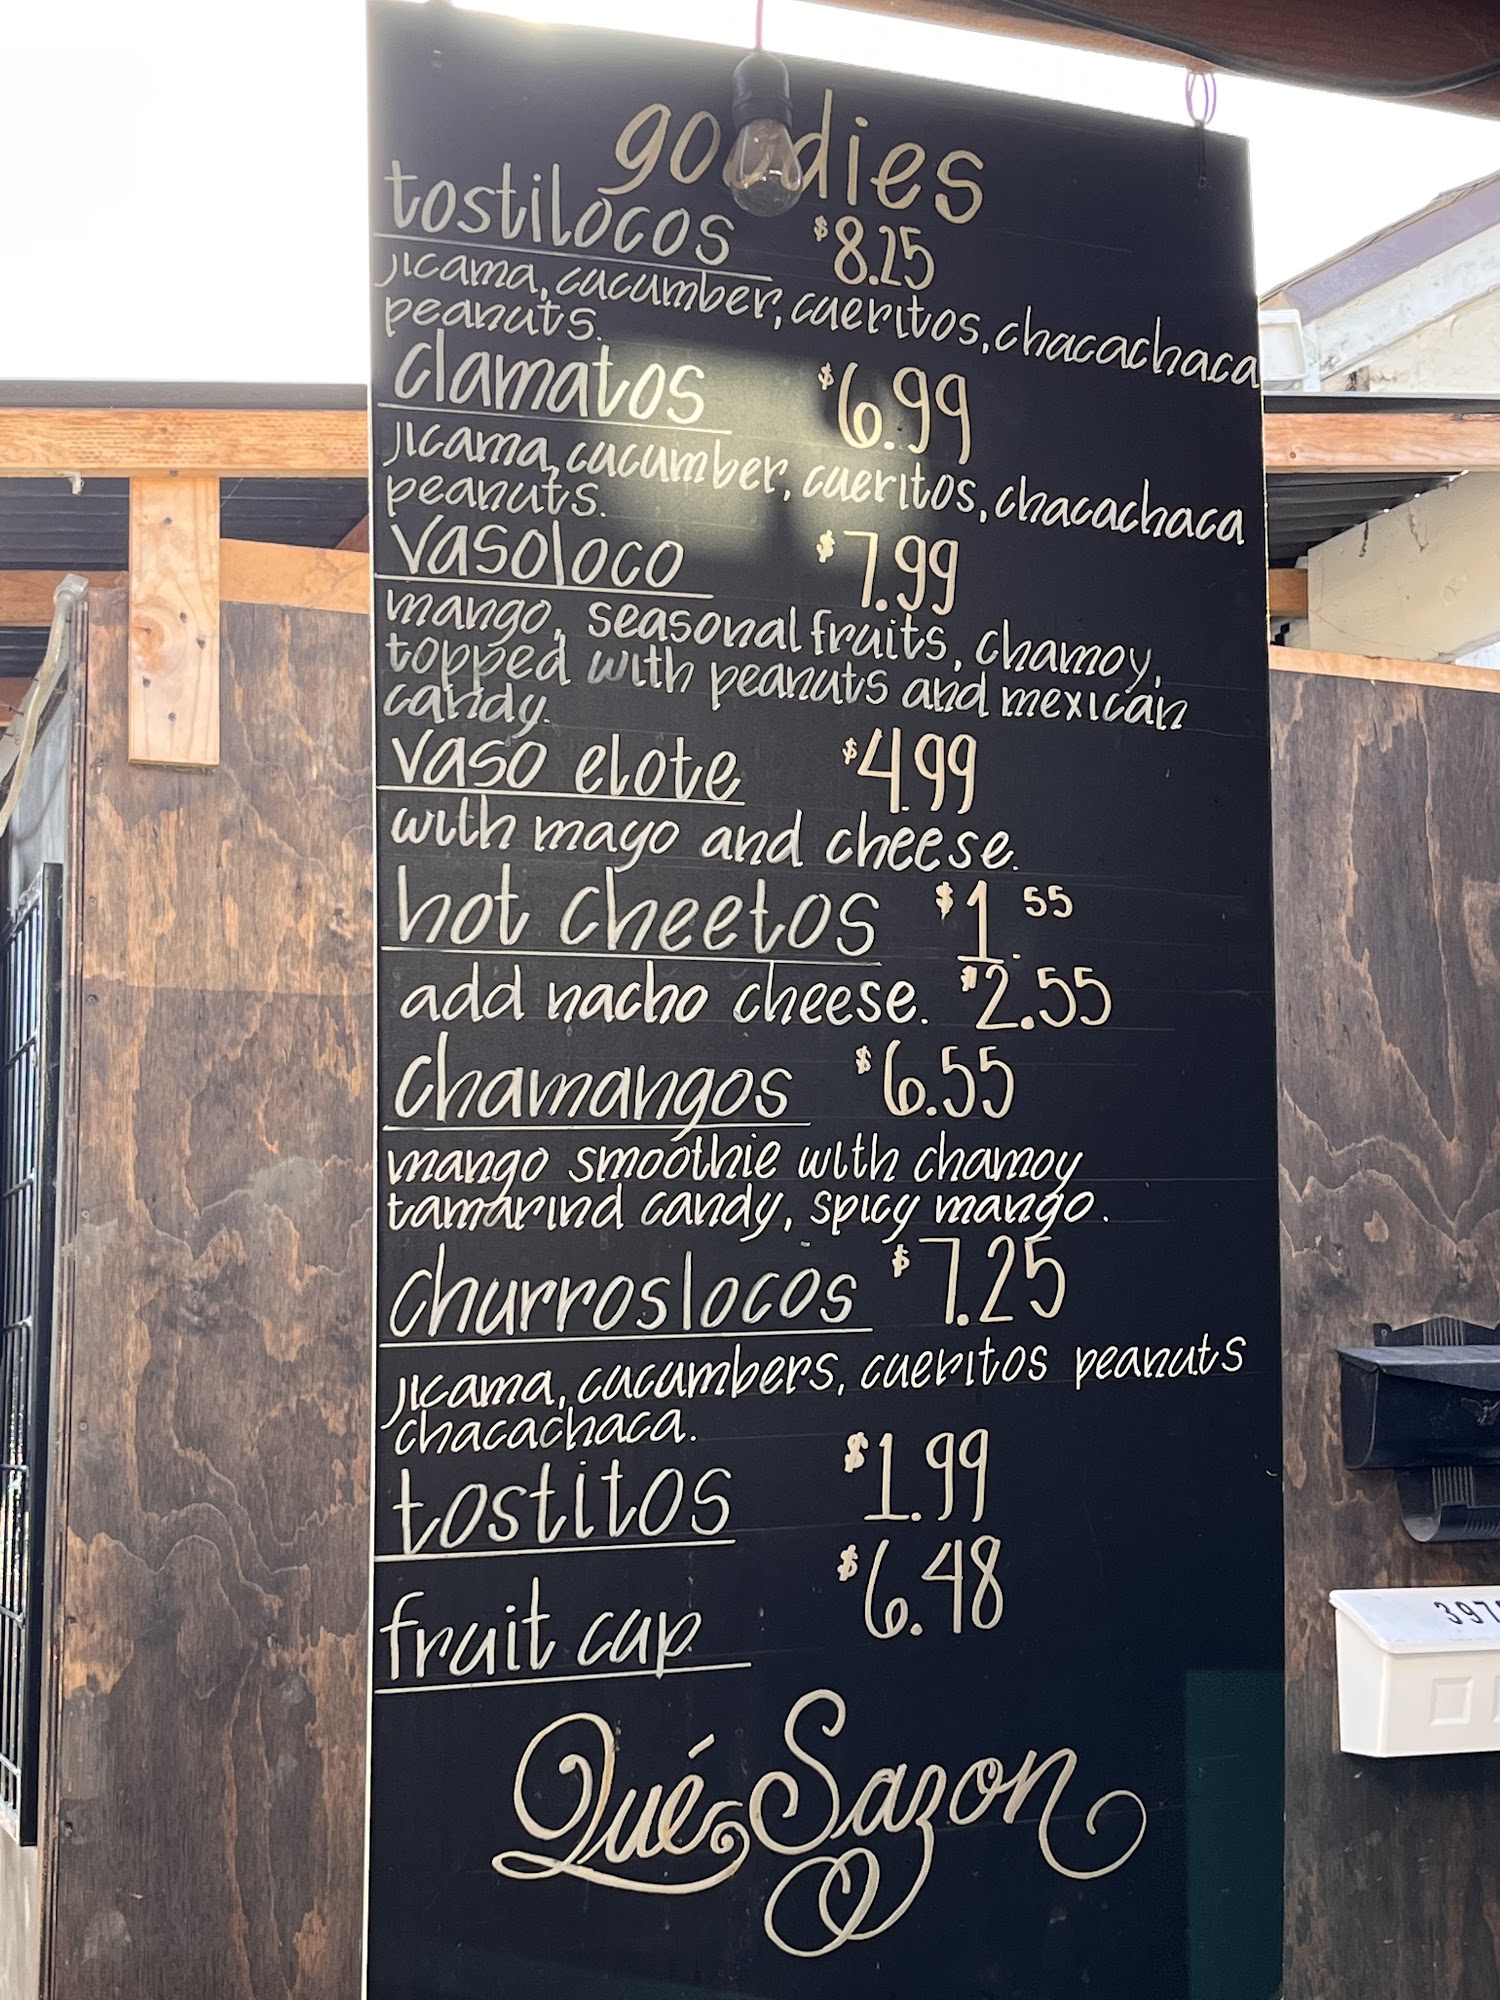 goodies
tostilocos $8.25
jicama, cucumber, cueritos, chacachaca
peanuts.
clamatos $6.99
jicama, cucumber, cueritos, chacachaca
peanuts.
vasoloco $7.99
mango, seasonal fruits, chamoy,
topped with peanuts and mexican
candy.
vaso elote $4.99
with mayo and cheese.
hot cheetos $1.55
add nacho cheese. $2.55
chamangos $6.55
mango smoothie with chamoy
tamarind candy, spicy mango.
churroslocos $7.25
jicama, cucumbers, cueritos peanuts
chacachaca.
tostitos $1.99
fruit cup $6.48
Qué Sazon